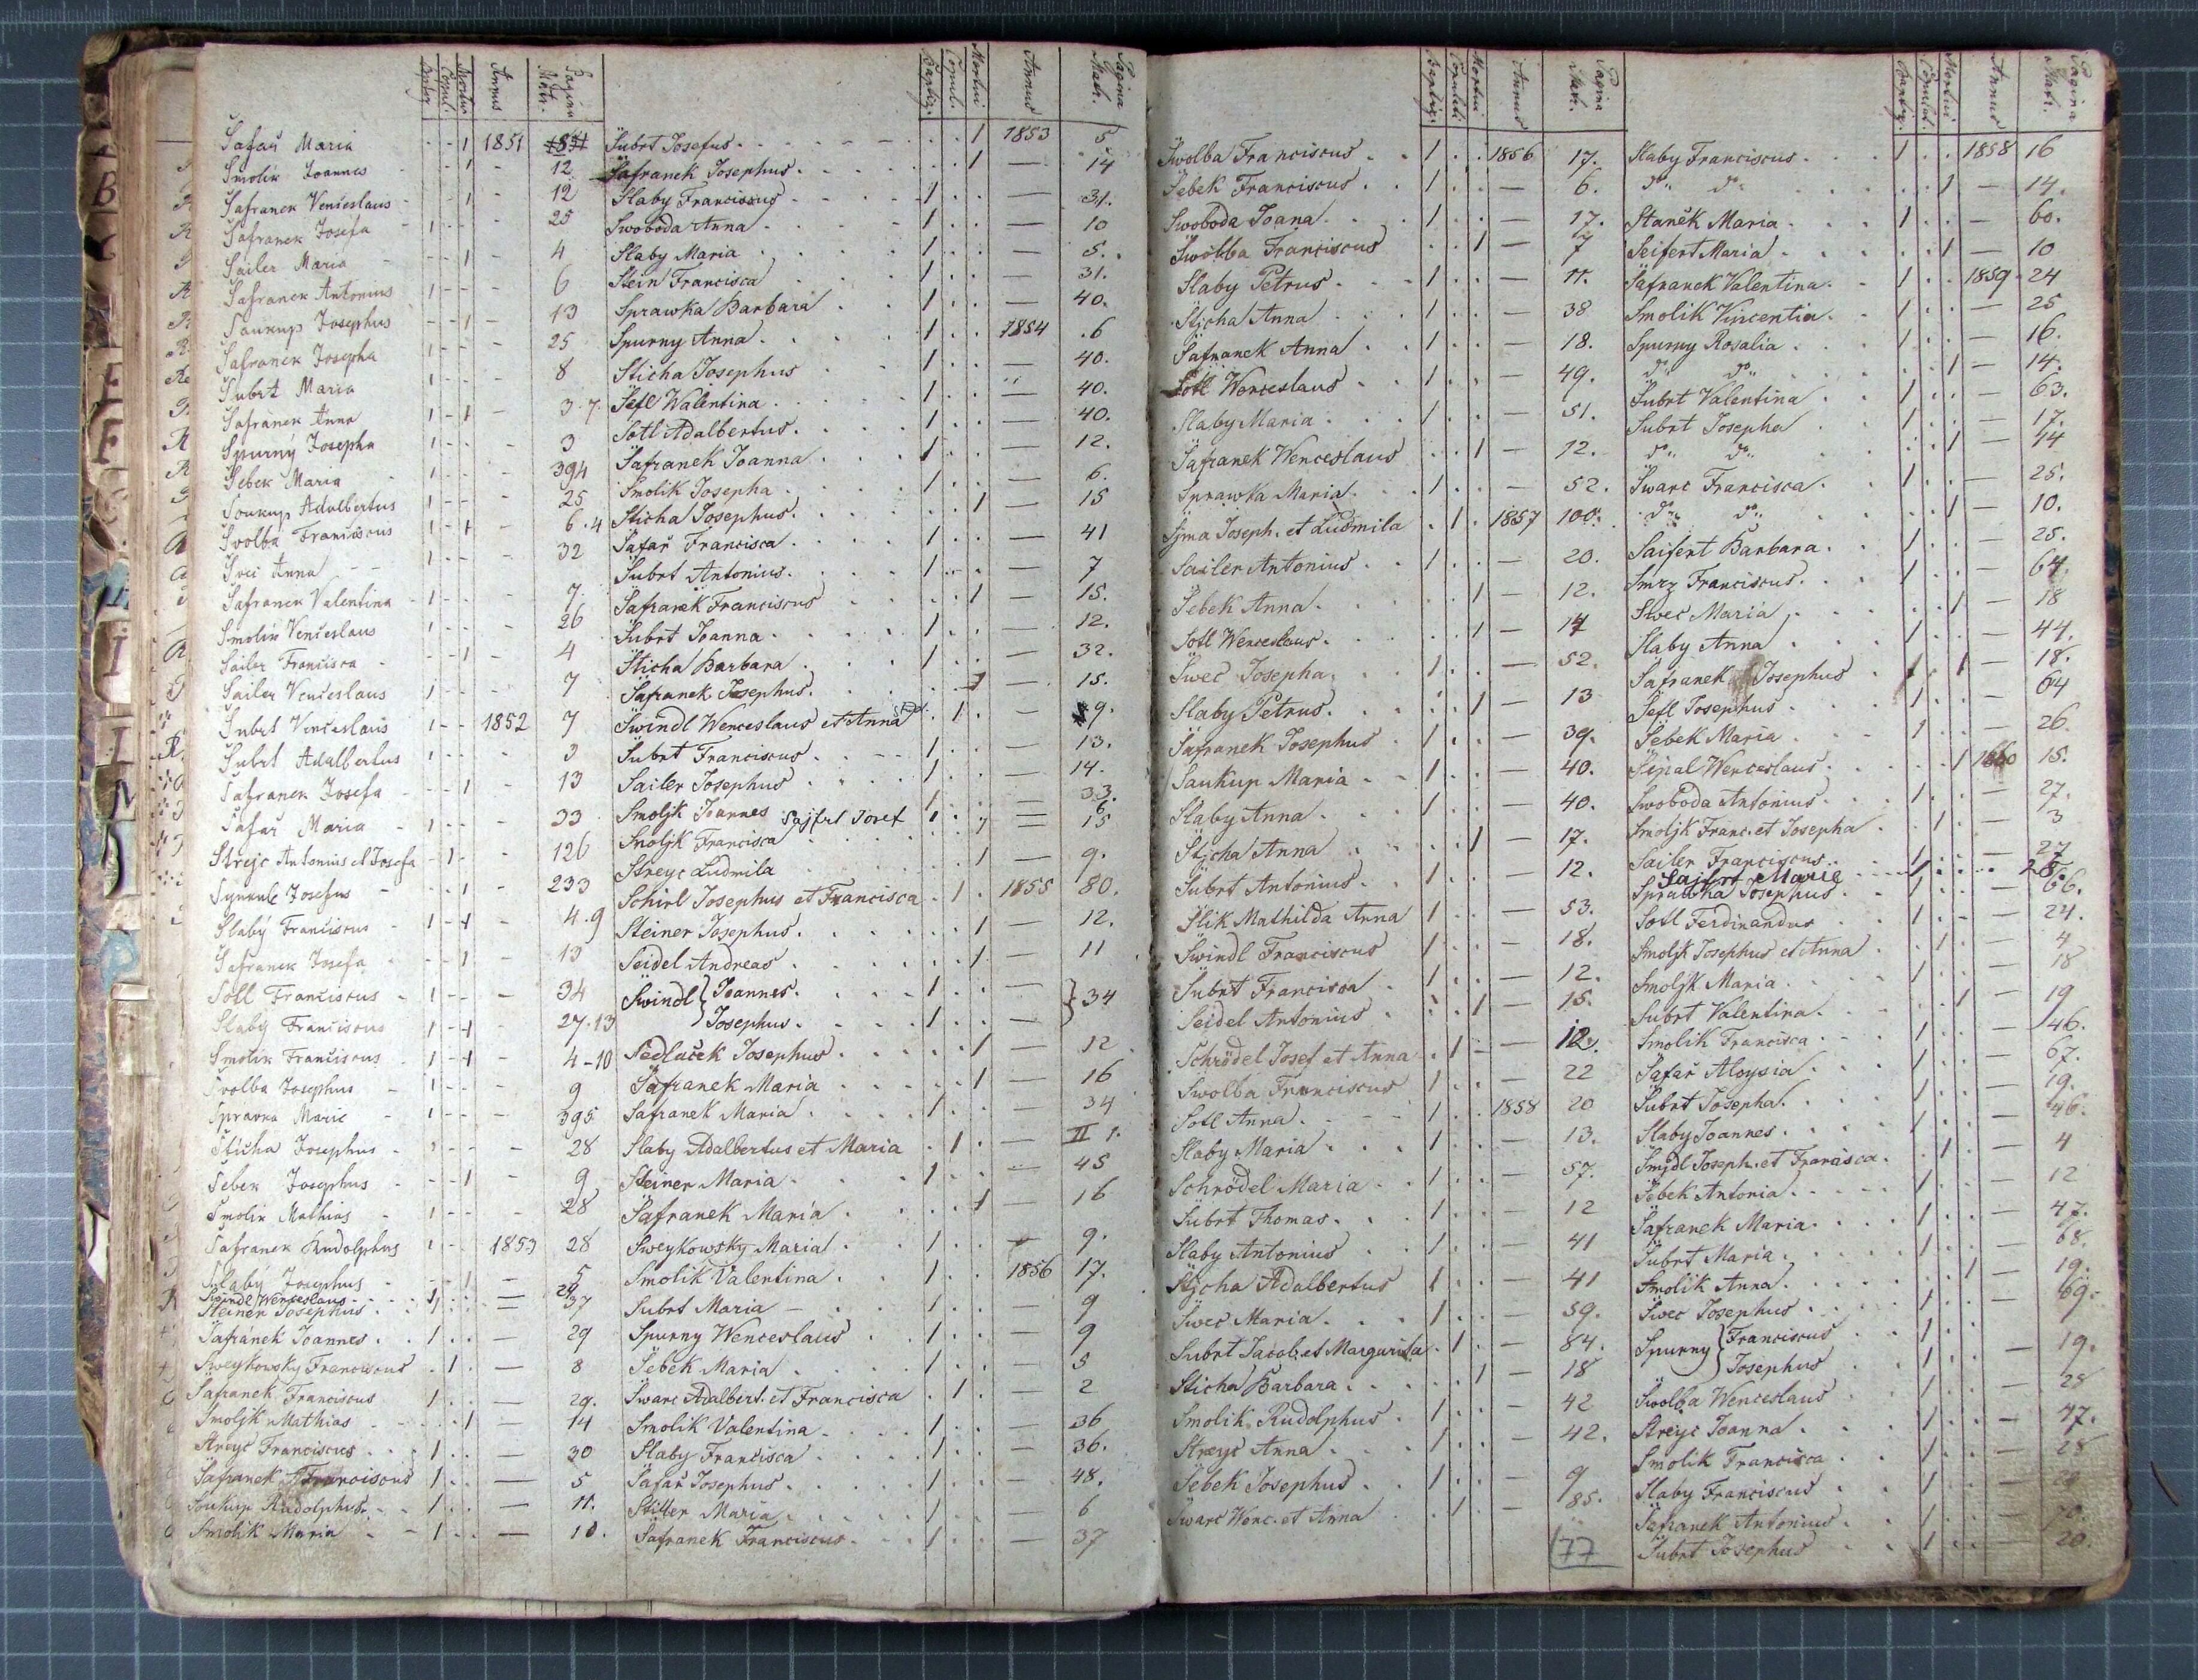 Annus Pagina Matr.
Šafař Maria - - 1 1851
Smolik Joannes - 1 - 12
Šafranek Venceslaus - 1 - 12
Šafranek Josefa 1 - - - 25
Sailer Maria - - 1 - 4
Šafranek Antonius 1 - - - 6
Soukup Josephus - - 1 - 13
Šafranek Josepha 1 - - - 25
Šubrt Maria 1 - - - 8
Šafranek Anna 1 - 1 - 3.7
Spurný Josepha 1 - - - 3
Šebek Maria 1 - - - 394
Soukup Adalbertus 1 - - - 25
Svolba Franciscus 1 - 1 - 6.4
Anna 1 - - - 32
Šafranek Valentina 1 - - - 7.
Smolik Venceslaus 1 - - - 26
Sailer Francisca - - 1 - 4
Sailer Venceslaus 1 - - - 7
Šubrt Venceslaus 1 - - 1852 7
Šubrt Adalbertus 1 - - - 3
Šafranek Josefa - - 1 - 13
Šafař Maria 1 - - - 33
Strejc Antonius et Josefa - 1 - - 126
Josefus - - 1 - 233
Slabý Franciscus 1 - 1 - 4.9
Šafranek Josefa - - 1 - 13
Sotl Franciscus 1 - - - 34
Slabý Franciscus 1 - 1 - 27.13
Smolik Franciscus 1 - 1 - 4-10
Svolba Josephus 1 - - - 9
Spravka Marie 1 - - - 395
Sticha Josephus 1 - - - 28
Šebek Josephus - - 1 - 9
Smolik Mathias 1 - - - 28
Šafranek Rudolphus 1 - - 1853 28
Slabý Josephus - - 1 - 5
Swindl Wenceslaus
Steiner Josephus 1 . . — 37
Šafranek Joannes . . 1 . . — 29
Sweykowsky Franciscus . 1 . — 8
Šafranek Franciscus 1 . . — 29.
Smoljk Mathias . . 1 — 14
Streyc Franciscus . . . 1 . . — 30
Šafranek Franciscus 1 . . — 5
Soukup Rudolphus . . 1 . . — 11.
Smolik Maria - - 1 . . — 10.
Baptiz. Copul. Mortui Annus Pagina Matr.
Šubrt Josefus . . 1 1853 5
Šafranek Josephus . . 1 — 14
Slaby Franciscus 1 . . — 31.
Swoboda Anna 1 . . — 10
Slaby Maria 1 . . — 5.
Stein Francisca 1 . . — 31.
Sprawka Barbara 1 . . — 40.
Spurny Anna 1 . . 1854 .6
Sticha Josephus 1 . . — 40.
Sefl Walentina 1 . . " 40.
Sotl Adalbertus 1 . . — 40.
Šafranek Joanna 1 . . — 12.
Smolik Josepha 1 . . — 6.
Sticha Josephus . . 1 — 15
Šafař Francisca 1 . . — 41
Šubrt Antonius 1 . . — 7
Šafranek Franciscus . . 1 — 15.
Šubrt Joanna 1 . . — 12.
Sticha Barbara 1 . . — 32.
Šafranek Josephus . . 1 — 15.
Swindl Wenceslaus et Anna . 1 . — 9.
Šubrt Franciscus 1 . . — 13.
Sailer Josephus 1 . . — 14.
Smoljk Joannes 1 . . — 33.
Sajfrt Josef 1 . . 6
Smoljk Francisca . . 1 — 15
Streyc Ludmila . . 1 — 9.
Schirl Josephus et Francisca . 1 . 1855 80.
Steiner Josephus . . 1 — 12.
Seidel Andreas . . 1 — 11
Swindl } Joannes 1 . . — } 34
Josephus 1 . . —
Sedlaček Josephus . . 1 — 12
Šafranek Maria . . 1 — 16
Šafranek Maria 1 . . — 34
Slaby Adalbertus et Maria . 1 . — II 1.
Steiner Maria 1 . . — 45
Šafranek Maria . . 1 — 16
Sweykowsky Maria 1 . . — 9.
Smolik Valentina 1 . . 1856 17.
Šubrt Maria 1 . . — 9
Spurny Wenceslaus 1 . . — 9
Šebek Maria 1 . . — 5
Swarc Adalbert. et Francisca . 1 . — 2
Smolik Valentina 1 . . — 36
Slaby Francisca 1 . . — 36.
Šafař Josephus 1 . . — 48.
Stiller Maria 1 . . — 6
Šafranek Franciscus 1 . . — 37
Baptiz. Copulati Mortui Annus Pagina Matr.
Swolba Franciscus 1 . . 1856 17.
Šebek Franciscus 1 . . — 6.
Swoboda Joana 1 . . — 17.
Swolba Franciscus . . 1 — 7
Slaby Petrus 1 . . — 11.
Stjcha Anna 1 . . — 38
Šafranek Anna 1 . . — 18.
Sotl Wenceslaus 1 . . — 49.
Slaby Maria 1 . . — 51.
Šafranek Wenceslaus . . 1 — 12.
Sprawka Maria 1 . . — 52.
Sjma Joseph. et Ludmila . 1 . 1857 100.
Sailer Antonius 1 . . — 20.
Šebek Anna . . 1 — 12.
Sotl Wenceslaus . . 1 — 14
Swec Josepha 1 . . — 52.
Slaby Petrus . . 1 — 13
Šafranek Josephus 1 . . — 39.
Saukup Maria 1 . . — 40.
Slaby Anna 1 . . — 40.
Stjcha Anna . . 1 — 17.
Šubrt Antonius 1 . . — 12.
Slik Mathilda Anna 1 . . — 53.
Swindl Franciscus 1 . . — 18.
Šubrt Francisca 1 . . — 12.
Seidel Antonius . . 1 — 15.
Schrödel Josef et Anna . 1 - — 12.
Swolba Franciscus 1 . . — 22
Sotl Anna 1 . . 1858 20
Slaby Maria 1 . . — 13.
Schrödel Maria 1 . . — 57.
Šubrt Thomas 1 . . — 12
Slaby Antonius 1 . . — 41
Stjcha Adalbertus 1 . . — 41
Swec Maria 1 . . — 59.
Šubrt Jacob. et Margarita . 1 . — 84.
Sticha Barbara . . 1 — 18
Smolik Rudolphus 1 . . — 42
Streyc Anna 1 . . — 42.
Šebek Josephus 1 . . — 9
Swarc Wenc. et Anna . 1 . — 85.
77
Baptiz. Copulat. Mortui Annus Pagina Matr.
Slaby Franciscus 1 . . 1858 16
do do . . 1 — 14.
Staněk Maria 1 . . — 60.
Seifert Maria . . 1 — 10
Šafranek Valentina 1 . . 1859 24
Smolik Vincentia 1 . . — 25
Spurny Rosalia 1 . . — 16.
do do . . 1 — 14.
Šubrt Valentina 1 . . — 63.
Šubrt Josepha 1 . . — 17.
do do . . 1 — 14
Swarc Francisca 1 . . — 25.
do do . . 1 — 10.
Saifert Barbara 1 . . — 25.
Smrz Franciscus 1 . . — 64.
Swec Maria . . 1 — 18
Slaby Anna 1 . . — 44.
Šafranek Josephus 1 — 18.
Sefl Josephus 1 . . — 64
Šebek Maria 1 . . — 26.
Wenceslaus . . 1 1860 15.
Swoboda Antonius 1 . . — 27.
Smoljk Franc. et Josepha . 1 . — 3
Sailer Franciscus 1 . . — 27
Sajfrt Marie 1 28.
Sprawka Josephus 1 . . 66.
Sotl Ferdinandus 1 . - — 24.
Smoljk Josephus et Anna . 1 . — 4
Smoljk Maria 1 . . — 18
Šubrt Valentina . . 1 — 19
Smolik Francisca 1 . . — 46.
Šafař Aloysia 1 . . — 67.
Šubrt Josepha 1 . . — 19.
Slaby Joannes 1 . . — 46.
Smjdl Joseph. et Francisca . 1 . — 4
Šebek Antonia 1 . . — 12
Šafranek Maria 1 . . — 47.
Šubrt Maria 1 . . — 68.
Smolik Anna . . 1 — 19.
Swec Josephus 1 . . — 69.
Spurny } Franciscus 1 . .
Josephus 1 . . — 19.
Swolba Wenceslaus 1 . . — 28
Streyc Joanna 1 . . — 47.
Smolik Francisca 1 . . — 28
Slaby Franciscus 1 . .
Šafranek Antonius 1 . . — 20.
Šubrt Josephus 1 . . — 20.
B
E
F
I